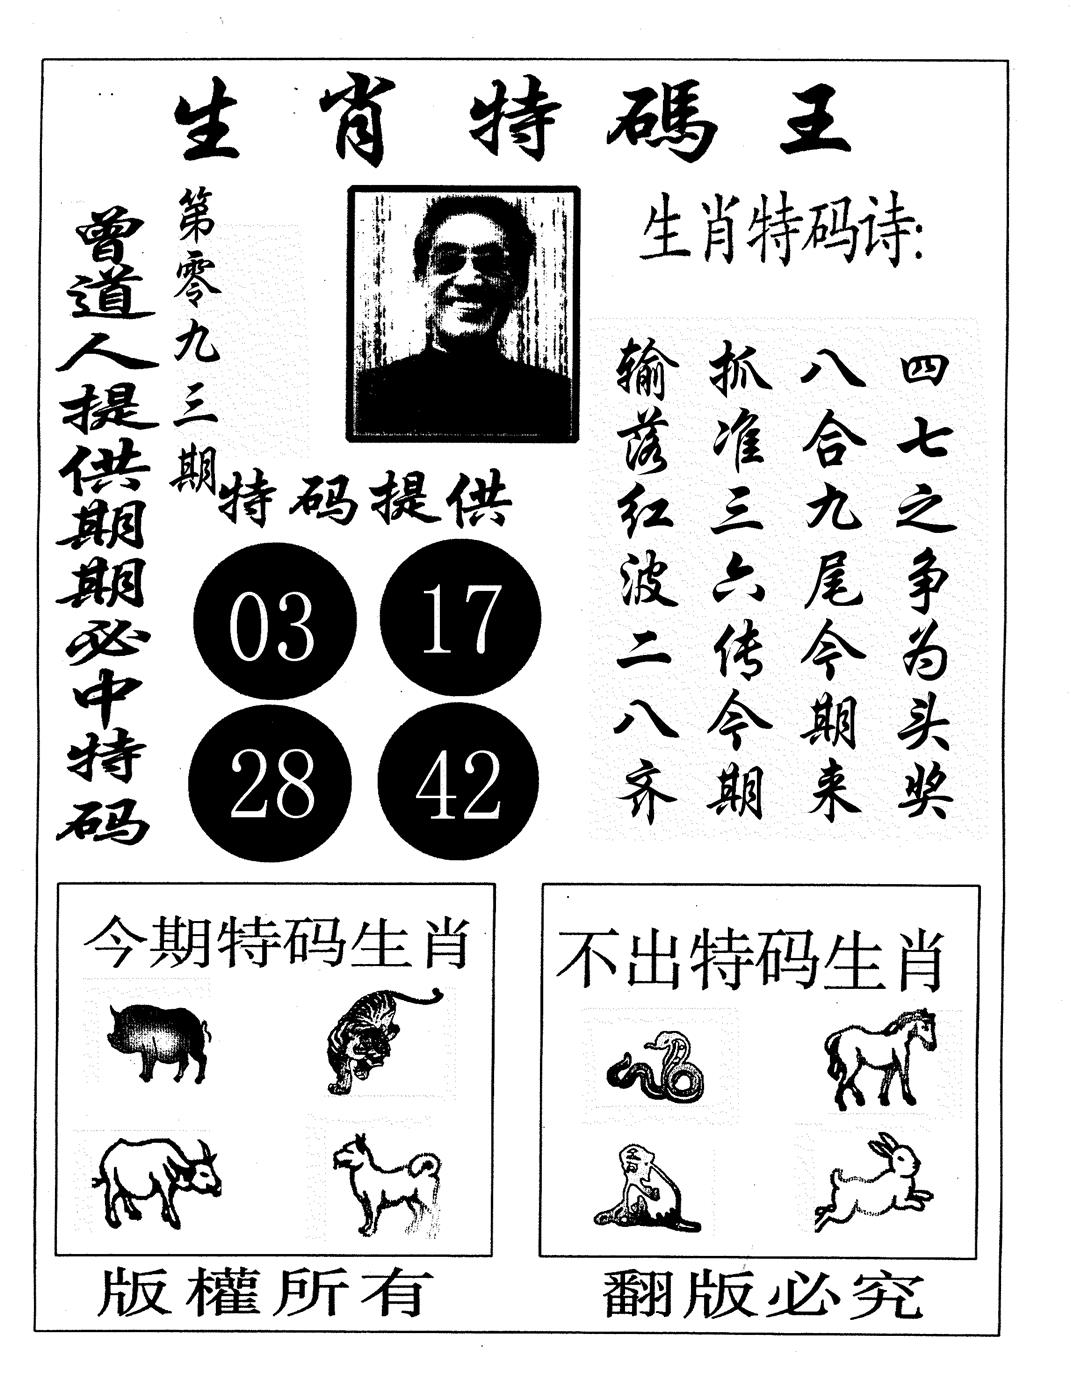 生肖特碼王
曾道人提供期期必中特码
第零九三期
生肖特码诗:
四七之争为头奖
八合九尾今期来
抓准三六传今期
输落红波二八齐
特码提供
03 17
28 42
今期特码生肖
不出特码生肖
版權所有
翻版必究